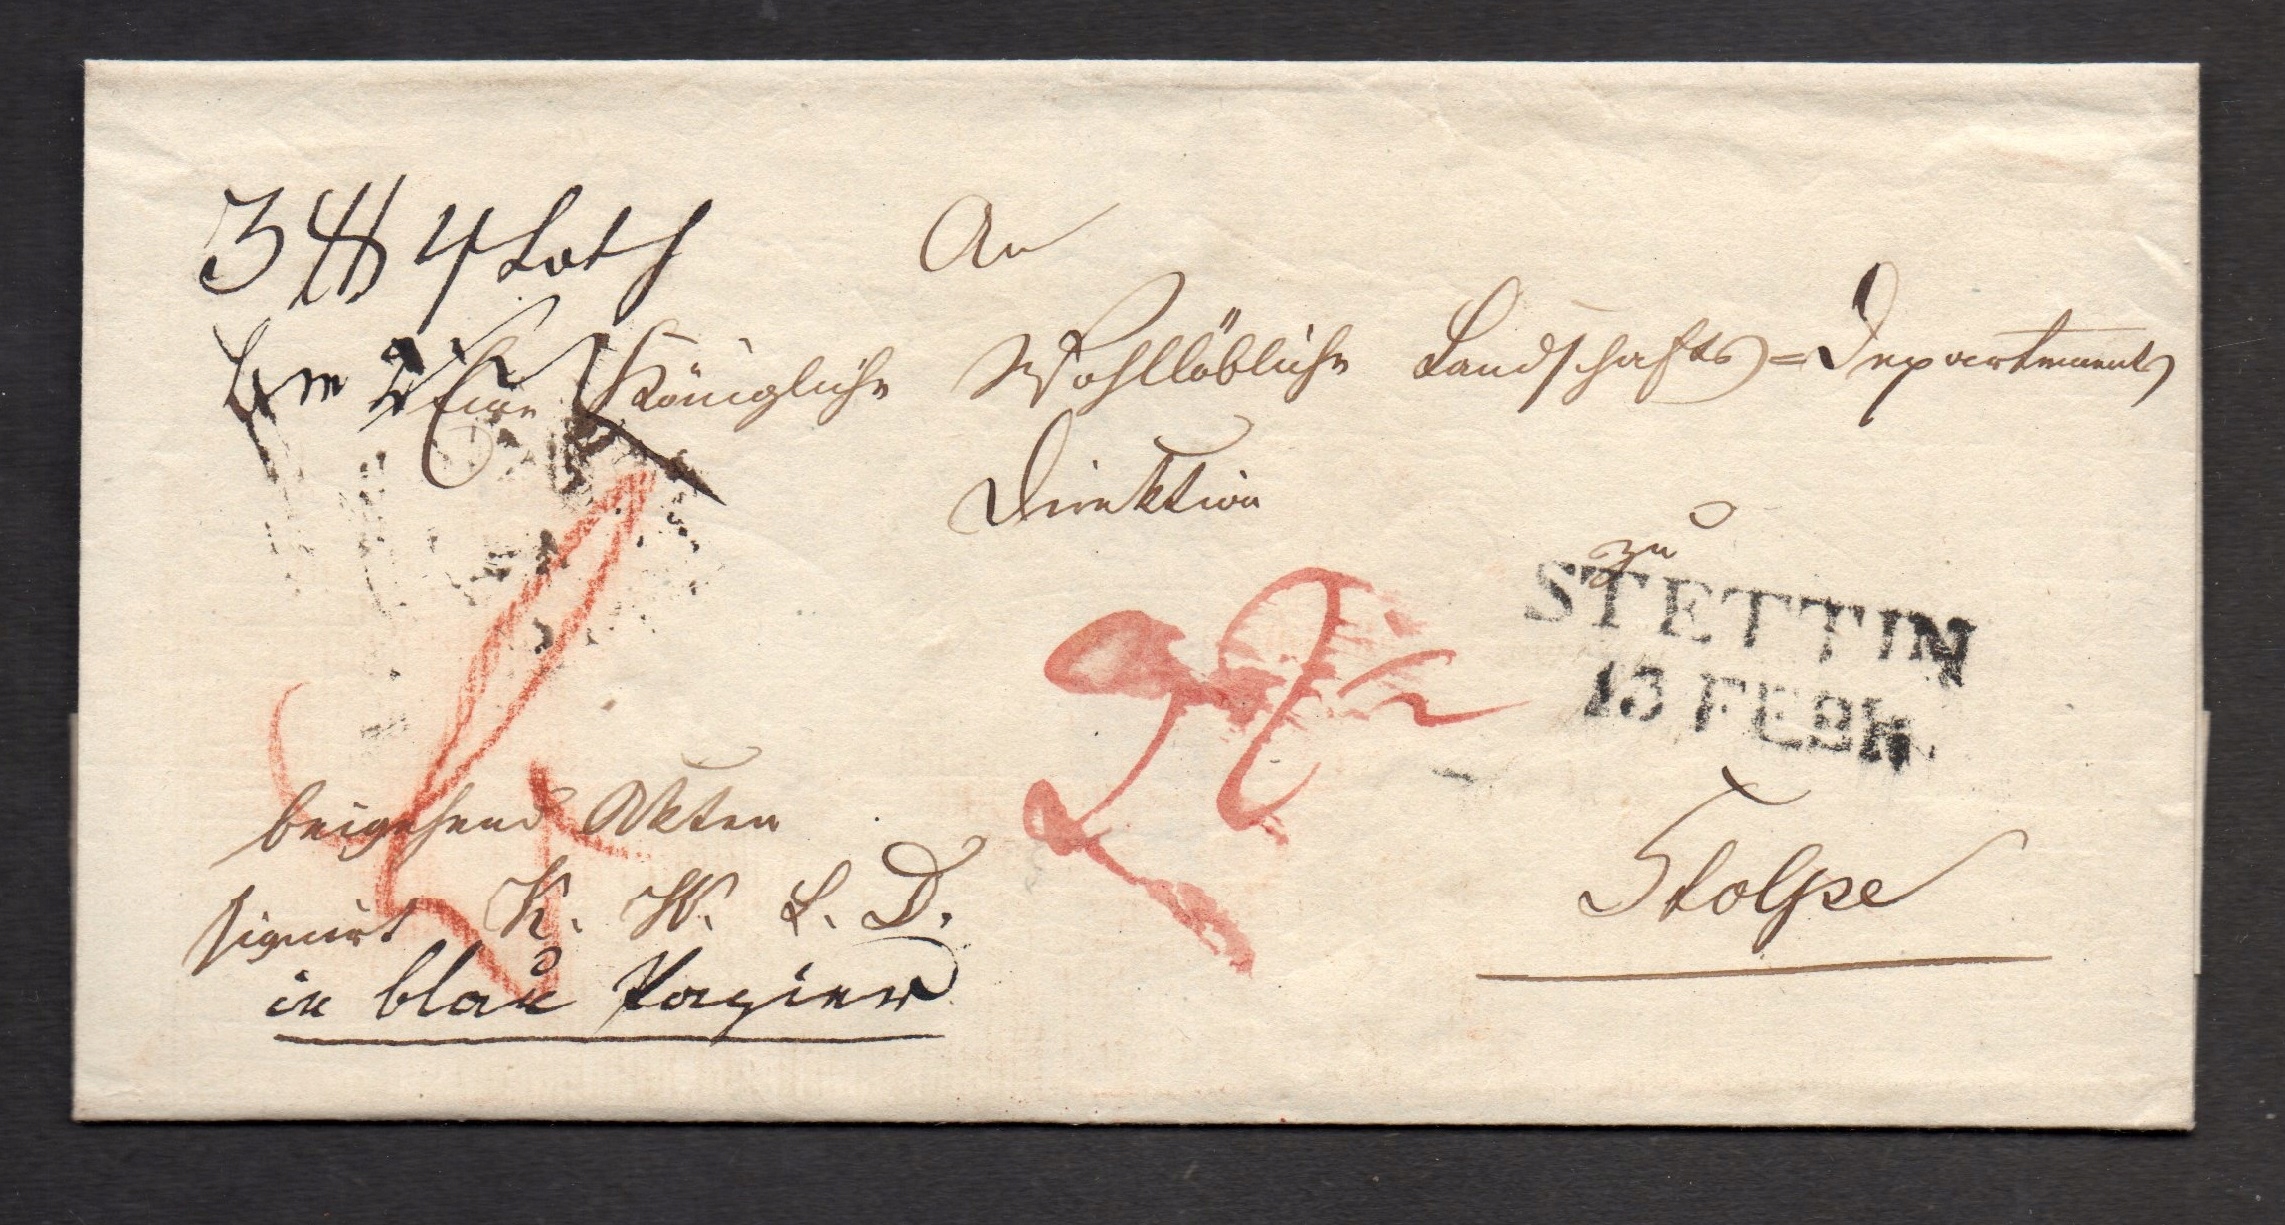 3 ℔ 4 Loth
An
Eine Königliche Wohllöbliche Landschafts=Departements
Direktion
zu
STETTIN
13 FEBR.
beigehend Akten
signirt K. W. L. D.
in blau Papier
Stolpe